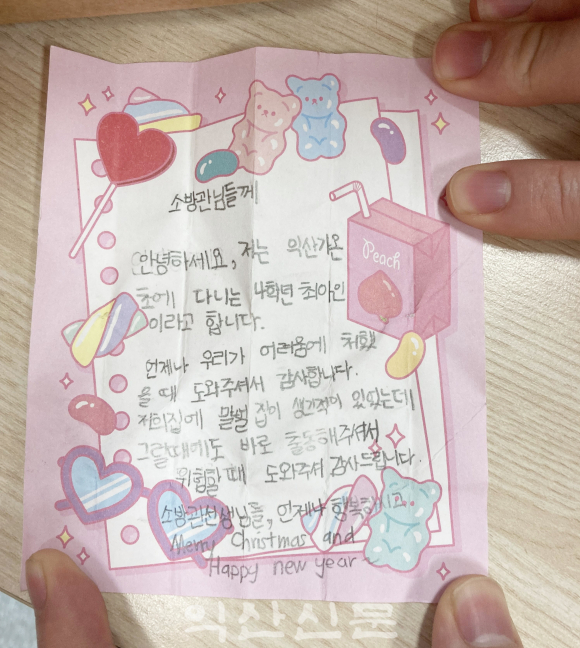 소방관님들께
안녕하세요, 저는 익산가온
초에 다니는 4학년 최아인
이라고 합니다.
언제나 우리가 어려움에 처했
을 때 도와주셔서 감사합니다.
저희집에 말벌 집이 생긴적이 있었는데
그럴때에도 바로 출동해주셔서
위험할 때 도와주셔 감사드립니다.
소방관선생님들, 언제나 행복하시고
Merry Christmas and
Happy new year~
Peach
익산신문